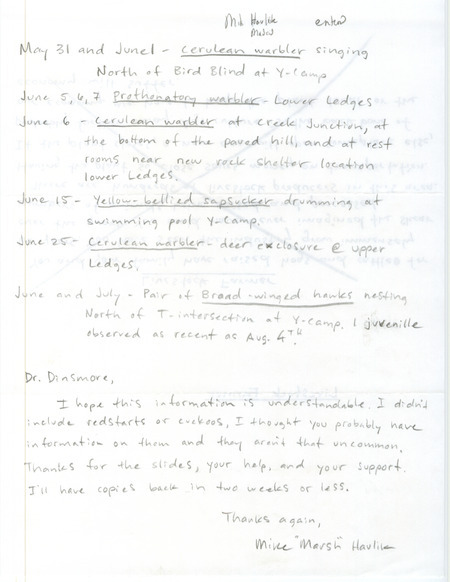 Mik Havlik entered
May 31 and June1 - cerulean warbler singing
North of Bird Blind at Y-Camp
June 5, 6, 7 Prothonatory warbler - Lower Ledges
June 6 - Cerulean warbler at Creek Junction, at
the bottom of the paved hill, and at rest
rooms near new rock shelter location
lower Ledges.
June 15 - Yellow-bellied sapsucker drumming at
swimming pool Y-Camp.
June 25 - Cerulean warbler - deer exclosure @ upper
Ledges.
June and July - Pair of Broad-winged hawks nesting
North of T-intersection at Y-Camp. 1 juvenille
observed as recent as Aug. 4TH.
Dr. Dinsmore,
I hope this information is understandable. I didn't
include redstarts or cuckoos, I thought you probably have
information on them and they aren't that uncommon.
Thanks for the slides, your help, and your support.
I'll have copies back in two weeks or less.
Thanks again,
Mike "Marsh" Havlik